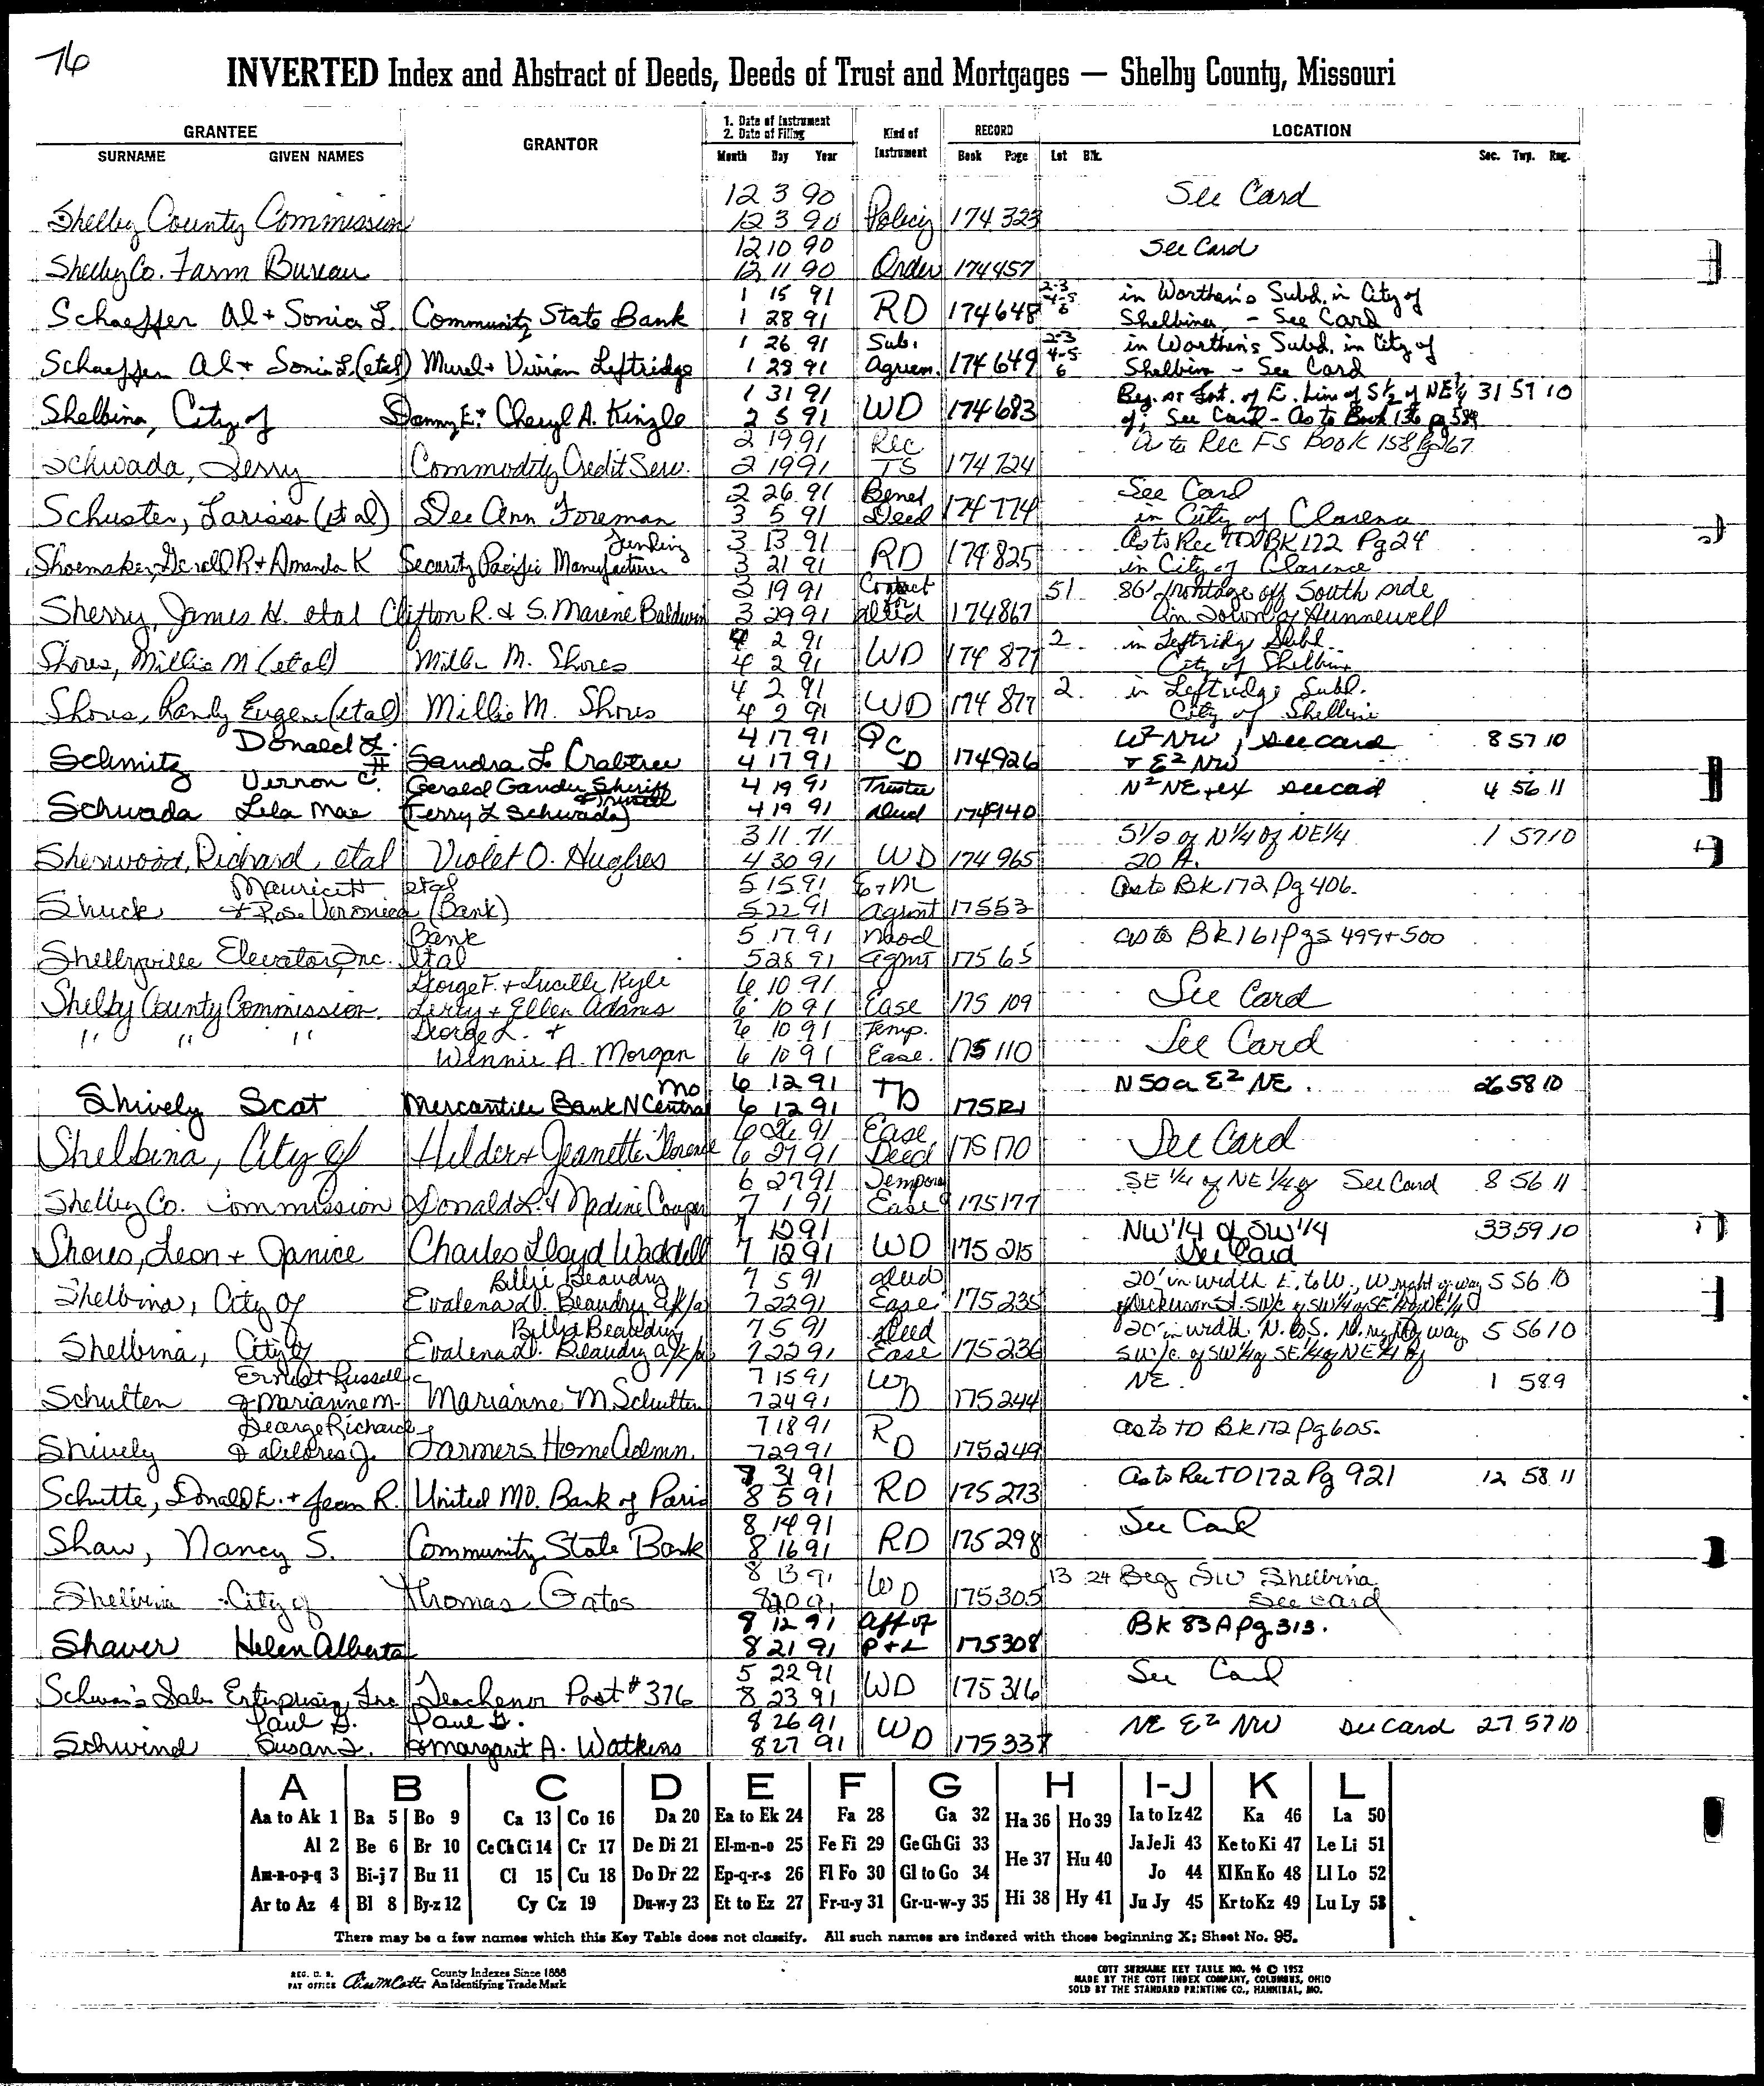 76
INVERTED Index and Abstract of Deeds, Deeds of Trust and Mortgages — Shelby County, Missouri
GRANTEE GRANTOR 1. Date of Instrument 2. Date of Filing Kind of Instrument RECORD LOCATION
SURNAME GIVEN NAMES Month Day Year Book Page Lot Blk. Sec. Twp. Rng.
12 3 90 See Card
Shelby County Commission 12 3 90 Policy 174 323
12 10 90 See Card
Shelby Co. Farm Bureau 12 11 90 Order 174 457
1 15 91 2-3 4-5 in Worthen's Subd. in City of
Schaeffer Al + Sonia L. Community State Bank 1 28 91 RD 174 648 6 Shelbina - See Card
1 26 91 Sub. 2-3 in Worthen's Subd. in City of
Schaeffer Al + Sonia L. (etal) Murel + Vivian Leftridge 1 28 91 Agreem. 174 649 4-5 6 Shelbina - See Card
1 31 91 Beg. at Int. of E. Line of S½ of NE¼ 31 57 10
Shelbina, City of Danny E. + Cheryl A. Kingle 2 5 91 WD 174 683 of, See Card - As to Book 136 pg 589
2 19 91 Rec As to Rec FS Book 158 Pg 267
Schwada, Jerry Commodity Credit Serv. 2 19 91 TS 174 724
2 26 91 Benef See Card
Schuster, Larissa (et al) Dee Ann Foreman 3 5 91 Deed 174 774 in City of Clarence
Funding 3 13 91 As to Rec TD BK 172 Pg 24
Shoemaker, Gerald R + Amanda K Security Pacific Manufacturer 3 21 91 RD 174 825 in City of Clarence
3 19 91 Contract for 51 86' frontage off South side
Sherry, James H. etal Clifton R. & S. Marene Baldwin 3 29 91 deed 174 867 in Town of Hunnewell
4 2 91 2 in Leftridge Subd.
Shores, Millie M (etal) Millie M. Shores 4 2 91 WD 174 877 City of Shelbina
4 2 91 2. in Leftridge Subd.
Shores, Randy Eugene (etal) Millie M. Shores 4 2 91 WD 174 877 City of Shelbina
Donald L. 4 17 91 QCD W² NW, see card 8 57 10
Schmitz II Sandra L Crabtree 4 17 91 174 926 + E² NW
Vernon C. Gerald Gander Sheriff + Trustee 4 19 91 Trustee N² NE + ex see card 4 56 11
Schwada Lela Mae (Terry L Schwada) 4 19 91 deed 174 940
3 11 71 S1/2 of N1/4 of NE1/4 1 57 10
Sherwood, Richard, etal Violet O. Hughes 4 30 91 WD 174 965 20 A.
Maurice H etal 5 15 91 E+M As to Bk 172 Pg 406.
Shuck + Rose Veronica (Bank) 5 22 91 Agrmt 175 53
Bank 5 17 91 Mod as to Bk 161 Pgs 499+500
Shelbyville Elevator, Inc. etal 5 28 91 Agmt 175 65
George F. + Lucille Kyle 6 10 91
Shelby County Commission Leroy + Ellen Adams 6 10 91 Ease 175 109 See Card
" " " George L. + 6 10 91 Temp.
Winnie A. Morgan 6 10 91 Ease. 175 110 See Card
Mo 6 12 91 N 50a E² NE. 26 58 10
Shively Scot Mercantile Bank N Central 6 12 91 TD 175 121
6 26 91 Ease See Card
Shelbina, City of Hilder + Jeanette Florence 6 27 91 Deed 175 170
6 27 91 Tempora SE 1/4 of NE 1/4 of See Card 8 56 11
Shelby Co. Commission Donald L. & Nadine Cooper 7 1 91 Ease 175 177
7 12 91 NW 1/4 of SW 1/4 33 59 10
Shores, Leon + Janice Charles Lloyd Waddell 7 12 91 WD 175 215 See Card
Billie Beaudry 7 5 91 deed 20' in width E. to W., W. right of way 5 56 10
Shelbina, City of Evalena D. Beaudry a/k/a 7 22 91 Ease 175 235 of Dickerson St. SW/c of SW1/4 of SE1/4 of NE1/4
Billie Beaudry 7 5 91 Deed 20' in width N. to S. N. right of way 5 56 10
Shelbina, City of Evalena D. Beaudry a/k/a 7 22 91 Ease 175 236 SW/c. of SW1/4 of SE1/4 of NE1/4 of
Ernest Russell 7 15 91 WD NE. 1 58 9
Schutten & Marianne M. Marianne M. Schutten 7 24 91 175 244
George Richard 7 18 91 As to TD Bk 172 Pg 605.
Shively & Delores J. Farmers Home Admn. 7 29 91 RD 175 249
8 31 91 As to Rec TD 172 Pg 921 12 58 11
Schutte, Donald E. + Jean R. United MO. Bank of Paris 8 5 91 RD 175 273
8 14 91 See Card
Shaw, Nancy S. Community State Bank 8 16 91 RD 175 298
8 13 91 13 24 Beg SW Shelbina
Shelbina City of Thomas Gates 8 20 91 WD 175 305 See card
8 12 91 Aff of Bk 83A pg. 313.
Shaver Helen Alberta 8 21 91 P+L 175 308
5 22 91 See Card
Schwan's Sales Enterprises, Inc Teachenor Post #376 8 23 91 WD 175 316
Paul G. Paul G. 8 26 91 NE E² NW see card 27 57 10
Schwind Susan L. & Margaret A. Watkins 8 27 91 WD 175 337
A B C D E F G H I-J K L
Aa to Ak 1 Ba 5 Bo 9 Ca 13 Co 16 Da 20 Ea to Ek 24 Fa 28 Ga 32 Ha 36 Ho 39 Ia to Iz 42 Ka 46 La 50
Al 2 Be 6 Br 10 Ce Ch Ci 14 Cr 17 De Di 21 El-m-n-o 25 Fe Fi 29 Ge Gh Gi 33 He 37 Hu 40 Ja Je Ji 43 Ke to Ki 47 Le Li 51
Am-n-o-p-q 3 Bi-j 7 Bu 11 Cl 15 Cu 18 Do Dr 22 Ep-q-r-s 26 Fl Fo 30 Gl to Go 34 Jo 44 Kl Kn Ko 48 Ll Lo 52
Ar to Az 4 Bl 8 By-z 12 Cy Cz 19 Du-w-y 23 Et to Ez 27 Fr-u-y 31 Gr-u-w-y 35 Hi 38 Hy 41 Ju Jy 45 Kr to Kz 49 Lu Ly 53
There may be a few names which this Key Table does not classify. All such names are indexed with those beginning X; Sheet No. 95.
REG. U. S. PAT OFFICE County Indexes Since 1888 An Identifying Trade Mark
COTT SURNAME KEY TABLE NO. 96 © 1952
MADE BY THE COTT INDEX COMPANY, COLUMBUS, OHIO
SOLD BY THE STANDARD PRINTING CO., HANNIBAL, MO.